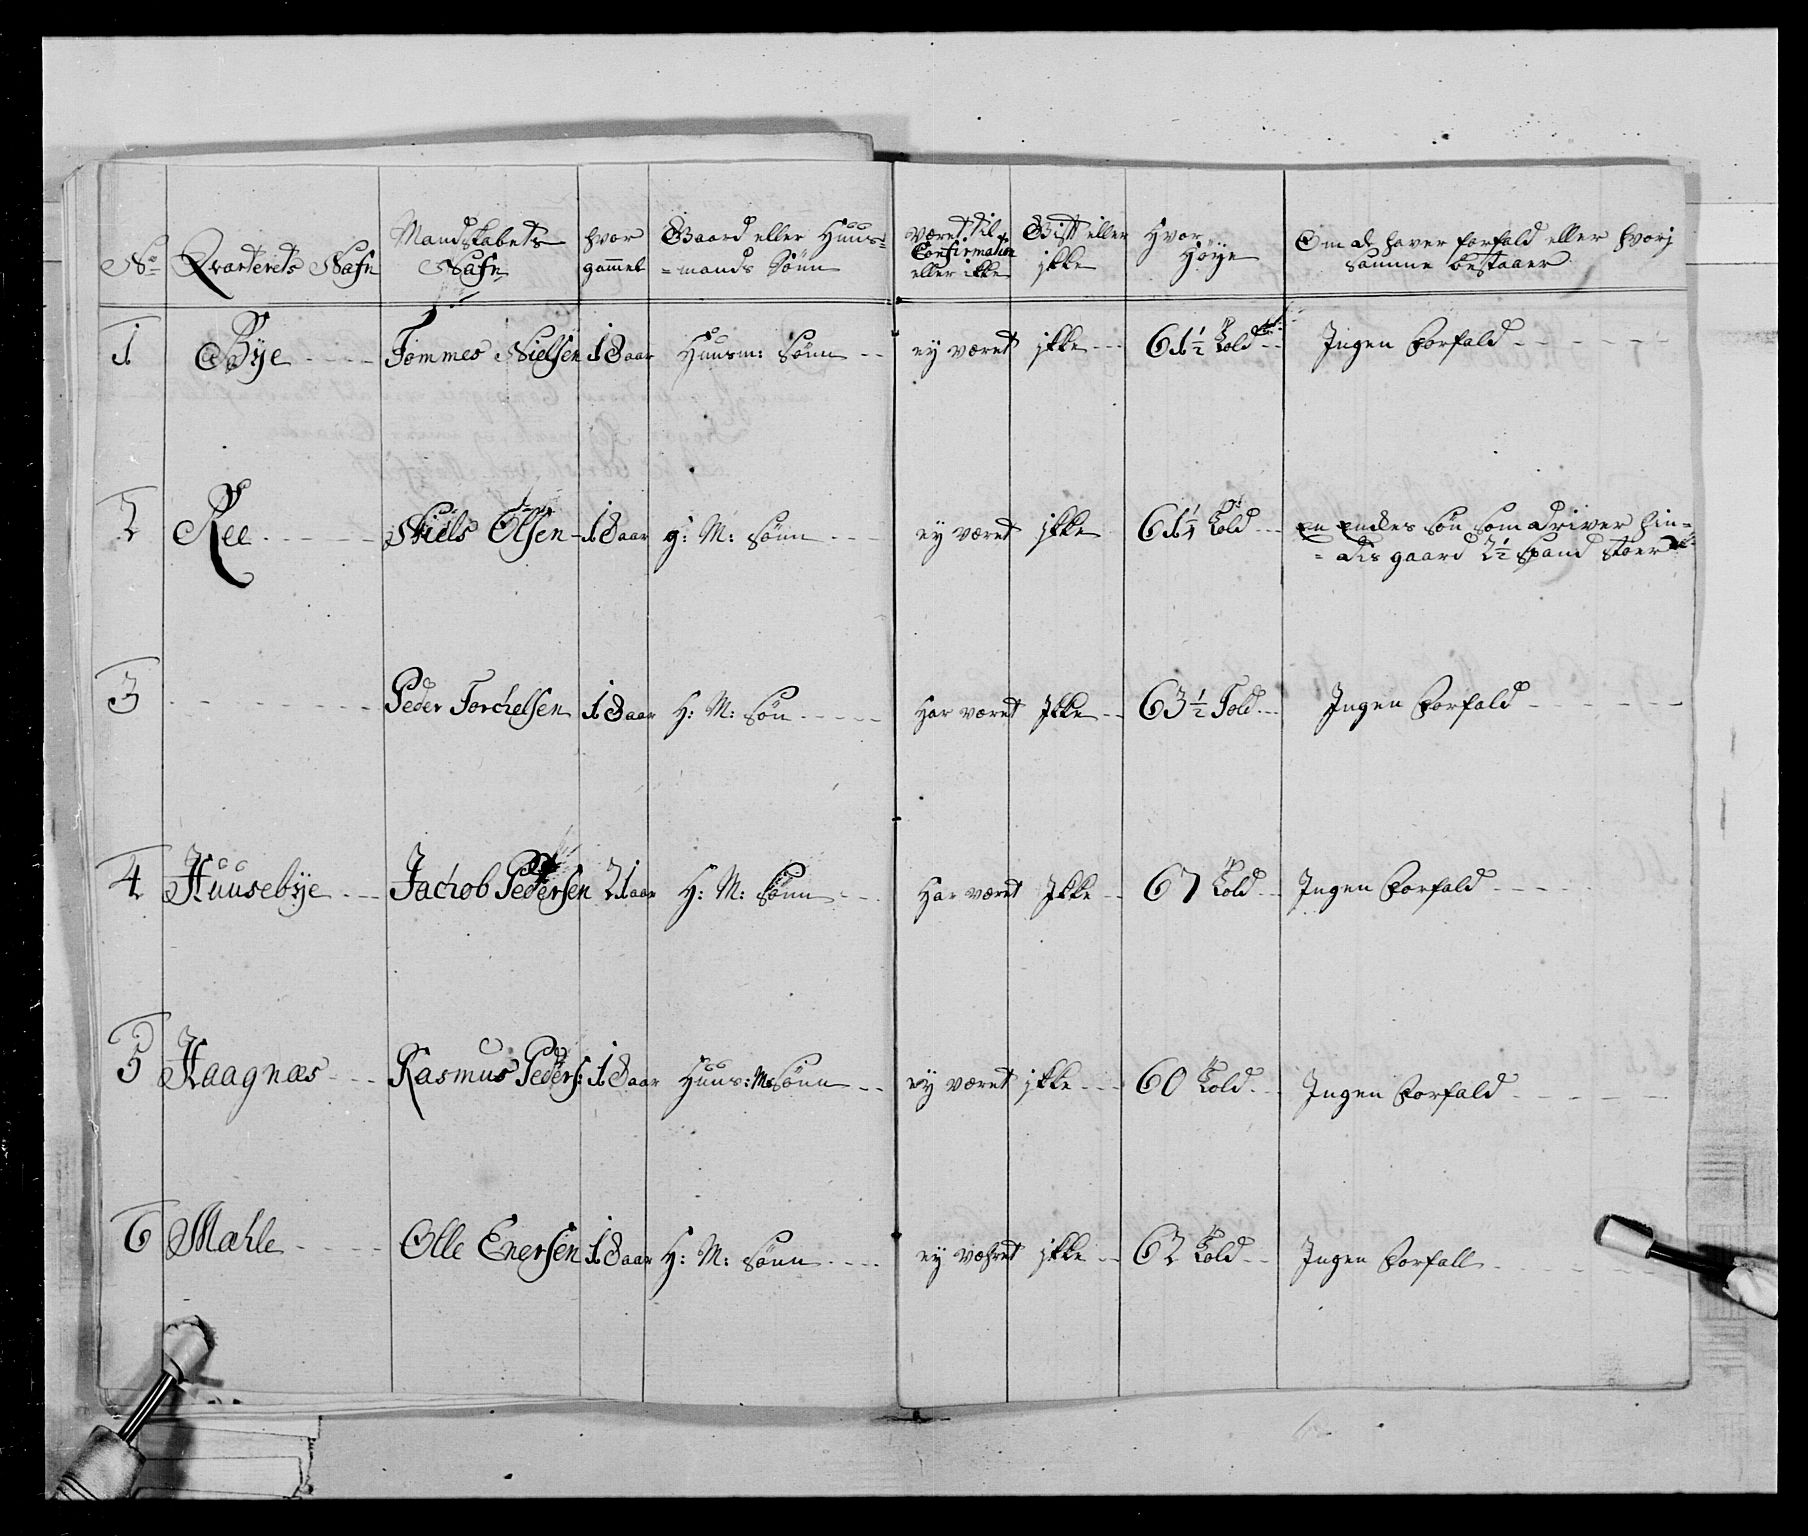 No Qvarterets Nafn Mandskabets Nafn hvor gammel Gaard eller Huus= =mands Sönn været til Confirmation eller ikke Gift eller ikke Hvor Höye Om de haver forfald eller hvorj samme bestaaer
1 Bye Tommes Nielsen 18 aar Huusm: Sönn ey været ikke 61½ Told Ingen Forfald
2 Ree Niels Olsen 18 aar g: M: Sönn ey været ikke Told En Enckes Sön som driver hin=
=dis gaard 2½ Spand stoer
3 Peder Torchelsen 18 aar H: M: Sön Har været Ikke 63½ Told Ingen Forfald
4 Huusebye Jachob Pedersen 21 aar H: M: Sönn Har været Ikke 67 Told Ingen Forfald
5 Haagnæs Rasmus Peders: 18 aar Huus: M: Sönn ey været ikke 60 Told Ingen Forfald
6 Mæhle Olle Enersen 18 aar H: M: Sönn ey været ikke 62 Told Ingen Forfall